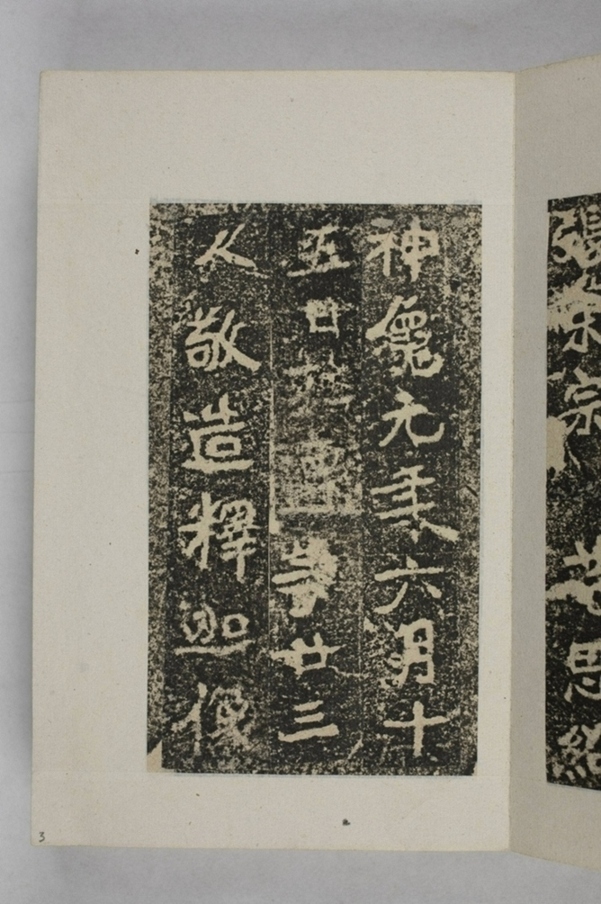 神龜元年六月十
五日 等廿三
人敬造釋迦像
張 宗
思
3